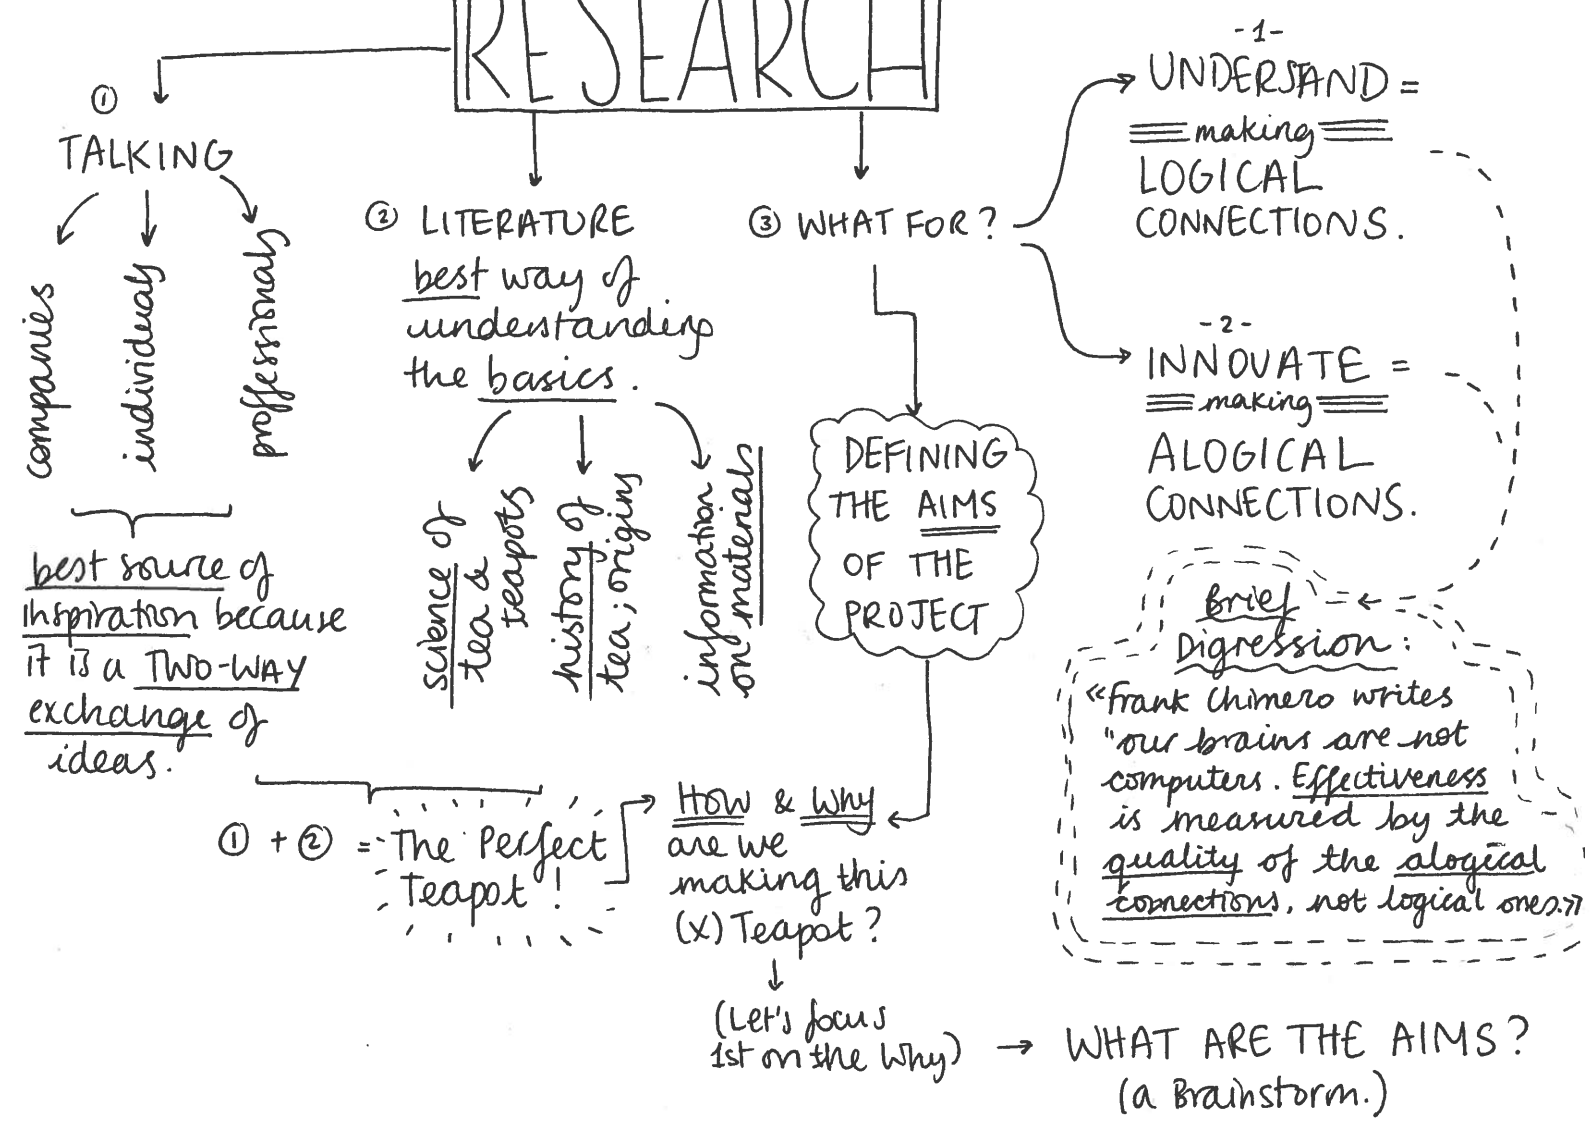 RESEARCH
①
TALKING
companies
individuals
proffessionals
best source of
inspiration because
it is a TWO-WAY
exchange of
ideas.
② LITERATURE
best way of
understanding
the basics.
science of
tea &
teapots
history of
tea; origins
information
on materials
① + ② = The Perfect
Teapot!
③ WHAT FOR?
DEFINING
THE AIMS
OF THE
PROJECT
How & Why
are we
making this
(x) Teapot?
(Let's focus
1st on the Why) → WHAT ARE THE AIMS?
(a Brainstorm.)
-1-
UNDERSAND =
making
LOGICAL
CONNECTIONS.
-2-
INNOVATE =
making
ALOGICAL
CONNECTIONS.
Brief
Digression:
«Frank Chimero writes
"our brains are not
computers. Effectiveness
is measured by the
quality of the alogical
connections, not logical ones.»